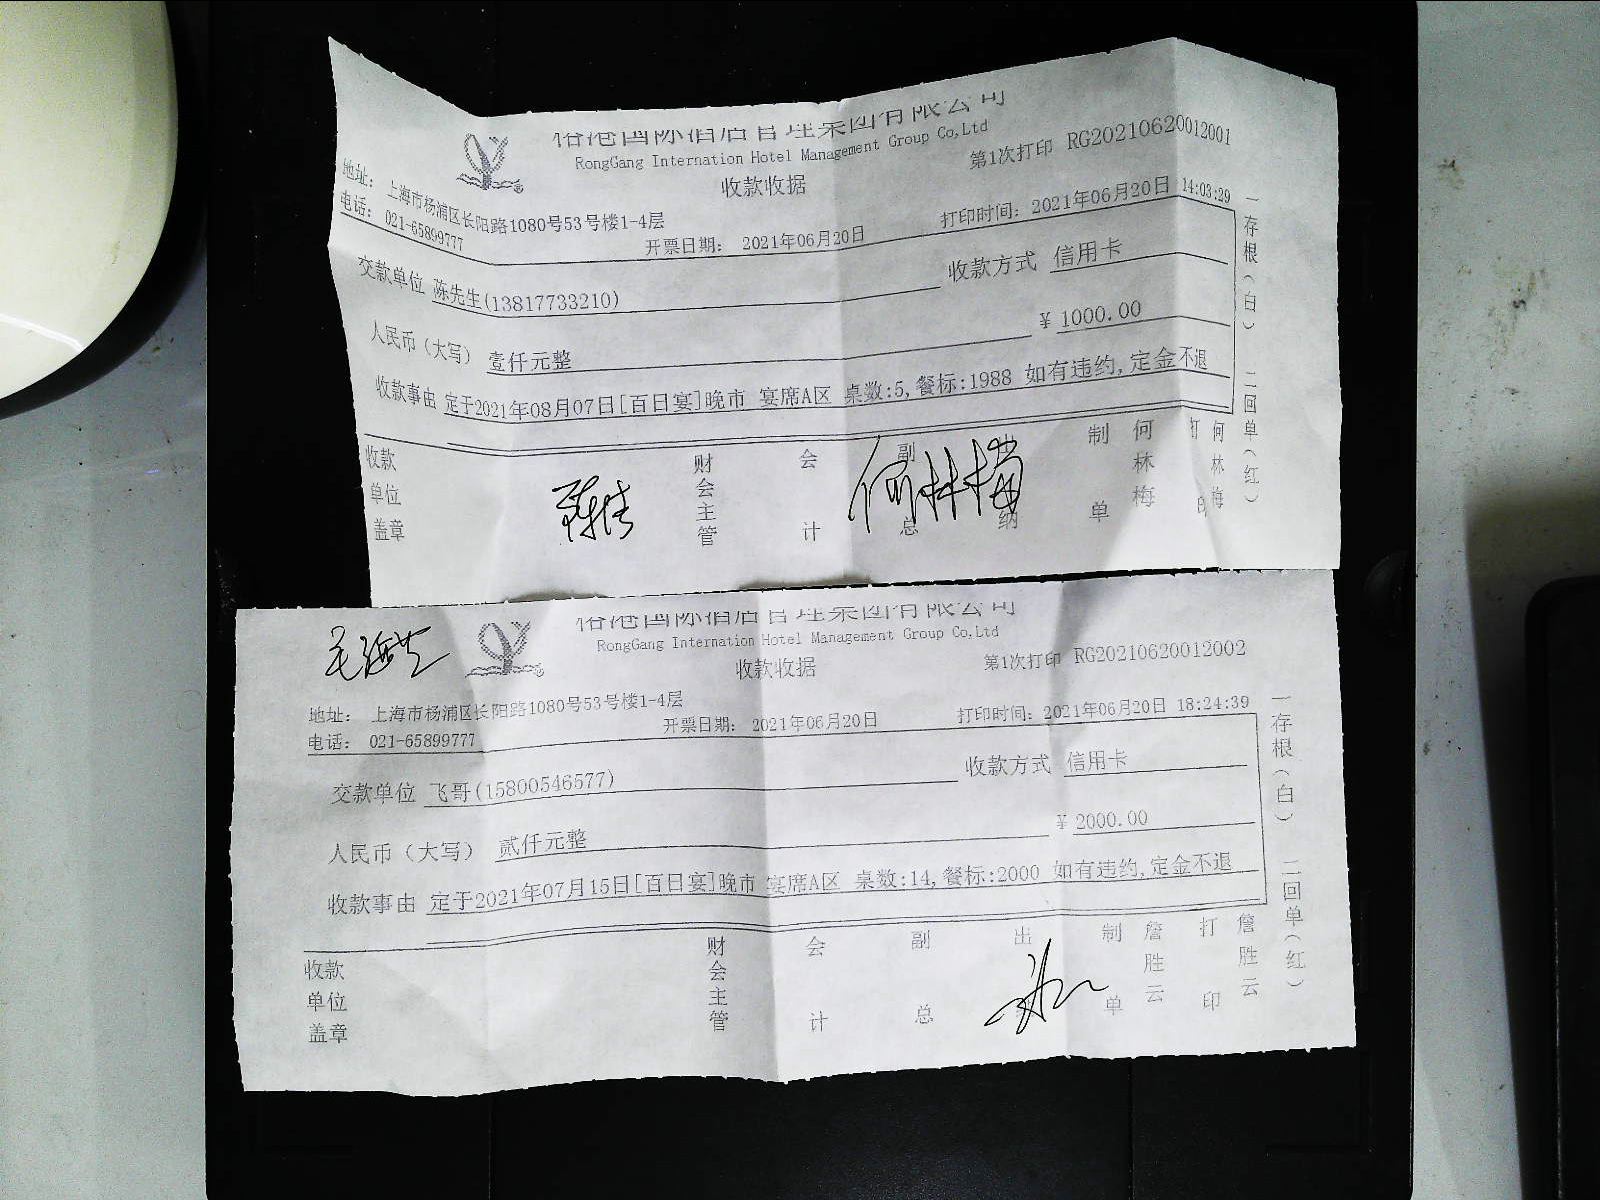 俗港国际酒店管理集团有限公司
RongGang Internation Hotel Management Group Co,Ltd
收款收据
第1次打印 RG20210620012001
地址: 上海市杨浦区长阳路1080号53号楼1-4层
电话: 021-65899777
开票日期: 2021年06月20日
打印时间: 2021年06月20日 14:03:29
交款单位 陈先生(13817733210)
收款方式 信用卡
人民币（大写） 壹仟元整
¥ 1000.00
收款事由 定于2021年08月07日[百日宴]晚市 宴席A区 桌数:5,餐标:1988 如有违约,定金不退
收款单位盖章
财会主管
会计
副总
何林梅
出纳
制单 何林梅
打印 何林梅
一存根(白) 二回单(红)
俗港国际酒店管理集团有限公司
RongGang Internation Hotel Management Group Co,Ltd
收款收据
第1次打印 RG20210620012002
地址: 上海市杨浦区长阳路1080号53号楼1-4层
电话: 021-65899777
开票日期: 2021年06月20日
打印时间: 2021年06月20日 18:24:39
交款单位 飞哥(15800546577)
收款方式 信用卡
人民币（大写） 贰仟元整
¥ 2000.00
收款事由 定于2021年07月15日[百日宴]晚市 宴席A区 桌数:14,餐标:2000 如有违约,定金不退
收款单位盖章
财会主管
会计
副总
出纳
制单 詹胜云
打印 詹胜云
一存根(白) 二回单(红)